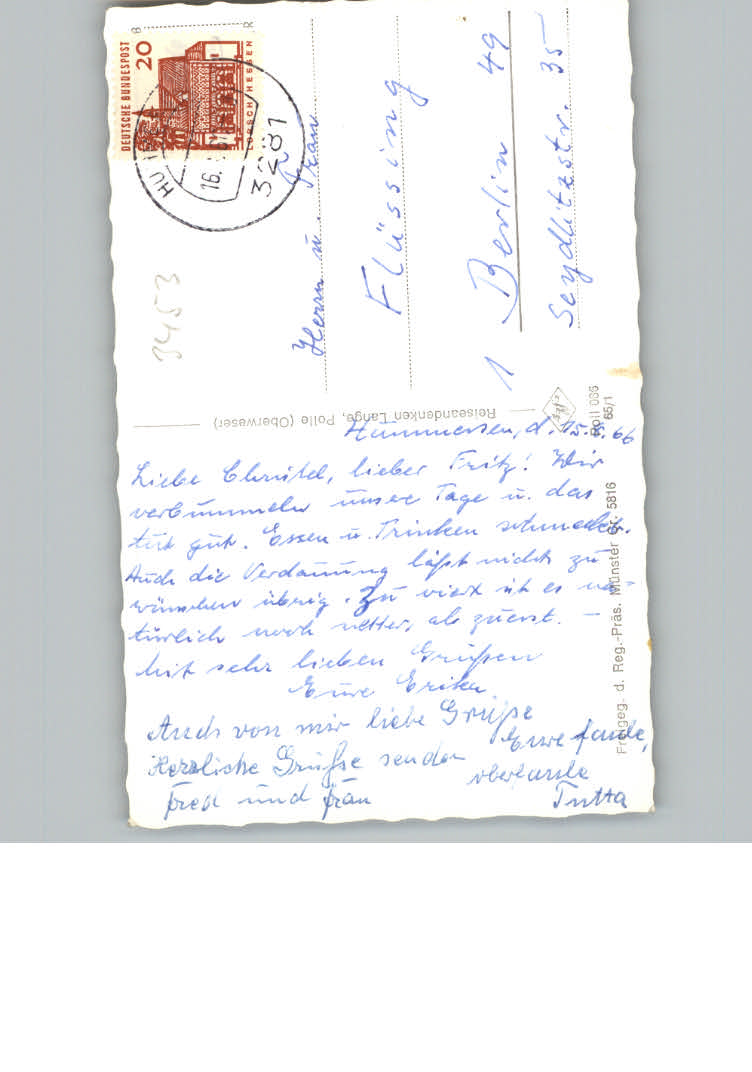 DEUTSCHE BUNDESPOST
20
LORSCH/HESSEN
B
R
16.
3281
3453
Herrn u. Frau
Flüssing
1 Berlin 49
Seydlitzstr. 35
Reiseandenken Lange, Polle (Oberweser)
Poll 036
65/1
Freigeg. d. Reg.-Präs. Münster Nr. 5816
Hummersen, d. 15. 66
Liebe Christel, lieber Fritz! Wir
verbummeln unsere Tage u. das
tut gut. Essen u. Trinken schmeckt.
Auch die Verdauung läßt nichts zu
wünschen übrig. Zu viert ist es na-
türlich noch netter, als zuerst. –
Mit sehr lieben Grüßen
Eure Erika
Auch von mir liebe Grüße
Eure faule,
Herzliche Grüße senden
Fred und Frau
Jutta